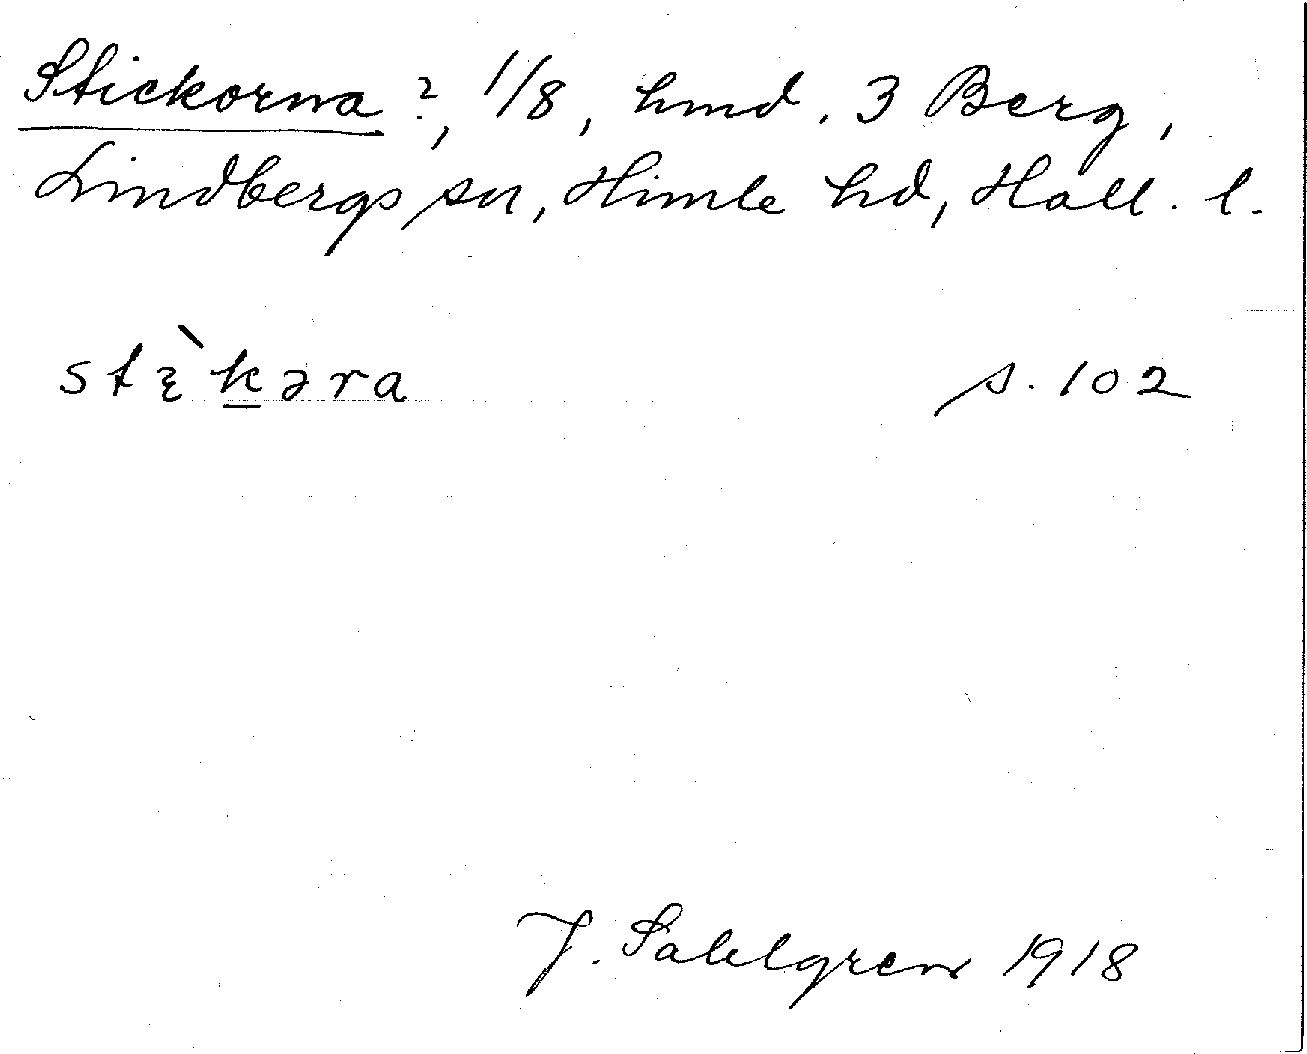 Stickorna?, 1/8, hmd. 3 Berg,
Lindbergs sn, Himle hd, Hall. l.
stɛ̀k̲əra s. 102
J. Sahlgren 1918